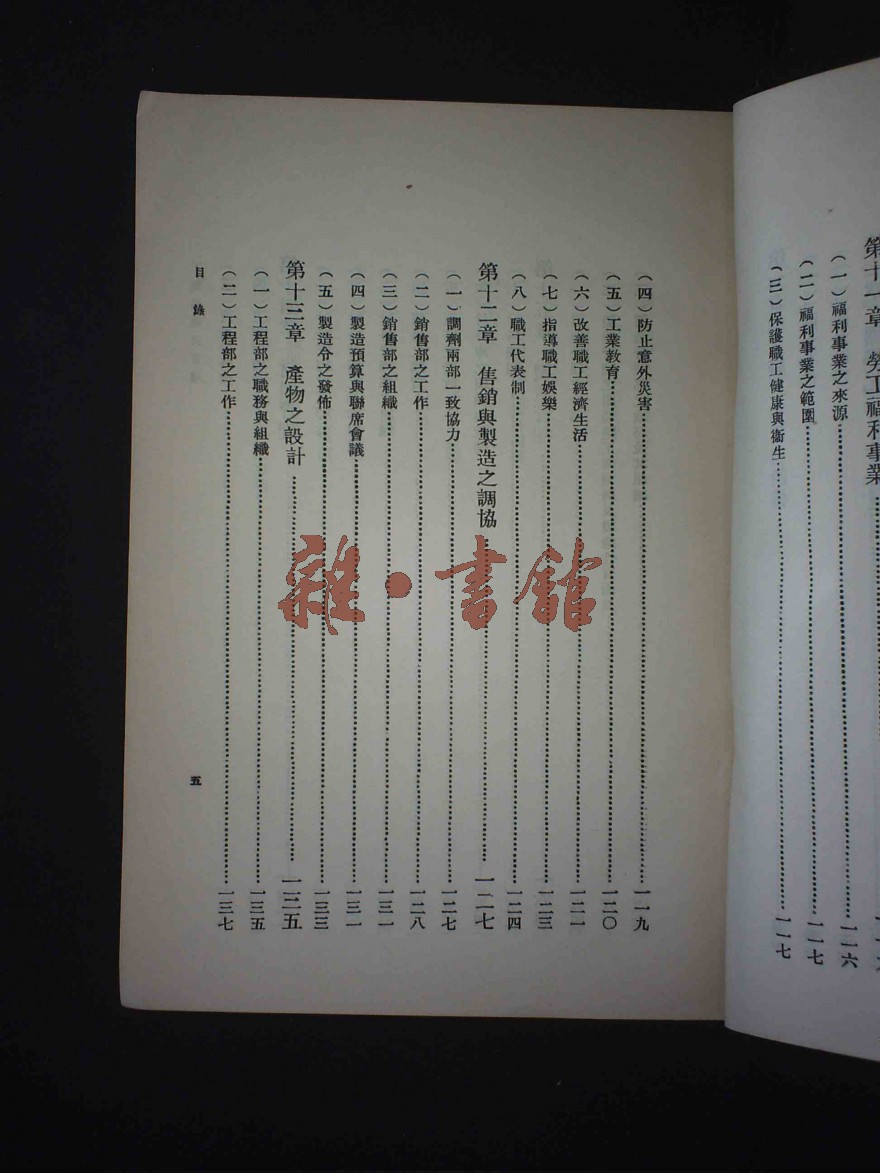 第十一章　勞工福利事業
（一）福利事業之來源……一一六
（二）福利事業之範圍……一一七
（三）保護職工健康與衞生……一一七
（四）防止意外災害……一一九
（五）工業教育……一二〇
（六）改善職工經濟生活……一二一
（七）指導職工娛樂……一二三
（八）職工代表制……一二四
第十二章　售銷與製造之調協……一二七
（一）調劑兩部一致協力……一二七
（二）銷售部之工作……一二八
（三）銷售部之組織……一三一
（四）製造預算與聯席會議……一三一
（五）製造令之發佈……一三三
第十三章　產物之設計……一三五
（一）工程部之職務與組織……一三五
（二）工程部之工作……一三七
目錄
五
雜·書館